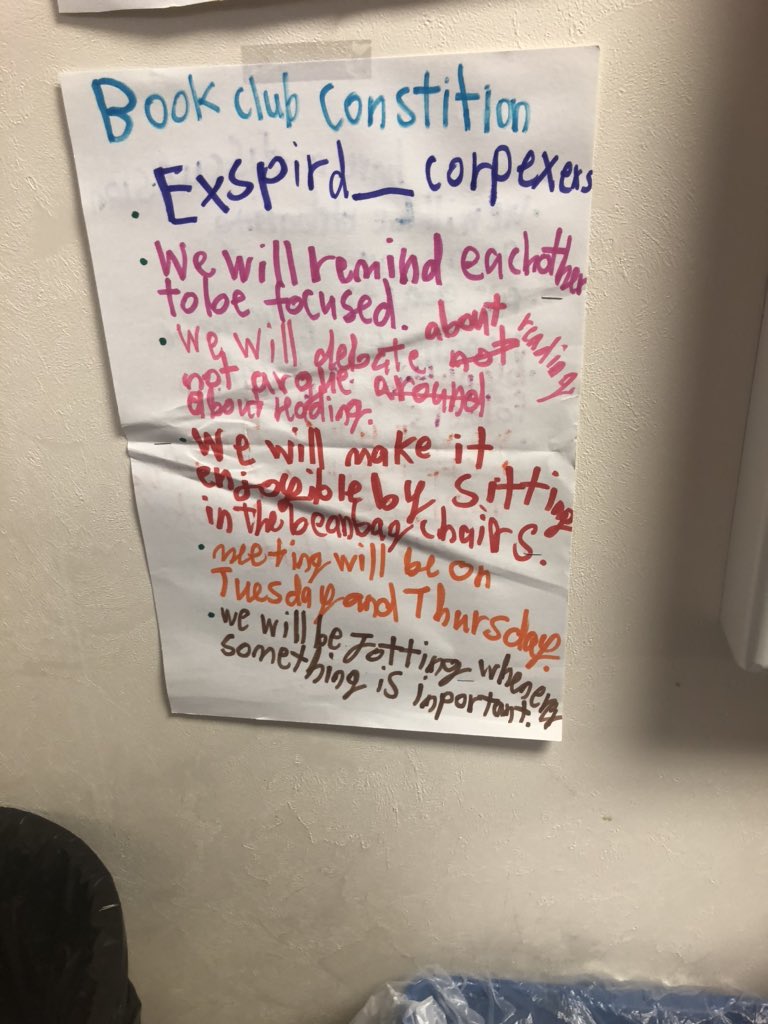 Book club Constition
Exspird_ corpexers
• We will remind eachother
to be focused.
• We will debate not about reading
not argue around
about reading.
• We will make it
enjoeible by sitting
in the beanbag chairs.
• meeting will be on
Tuesday and Thursday.
• we will be Jotting whenevry
something is inportant.